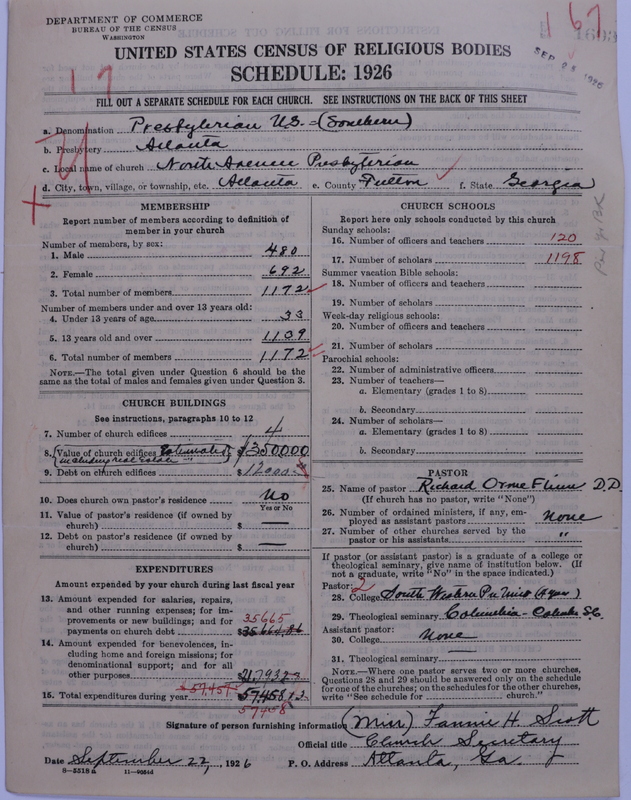 DEPARTMENT OF COMMERCE
BUREAU OF THE CENSUS
WASHINGTON
167
SEP 24 1926
UNITED STATES CENSUS OF RELIGIOUS BODIES
SCHEDULE: 1926
17
FILL OUT A SEPARATE SCHEDULE FOR EACH CHURCH. SEE INSTRUCTIONS ON THE BACK OF THIS SHEET
a. Denomination Presbyterian U.S. = (Southern)
b. Presbytery Atlanta
c. Local name of church North Avenue Presbyterian
d. City, town, village, or township, etc. Atlanta e. County Fulton f. State Georgia
MEMBERSHIP
Report number of members according to definition of
member in your church
Number of members, by sex:
1. Male 480
2. Female 692
3. Total number of members 1172
Number of members under and over 13 years old:
4. Under 13 years of age 33
5. 13 years old and over 1139
6. Total number of members 1172
NOTE.—The total given under Question 6 should be
the same as the total of males and females given under Question 3.
CHURCH BUILDINGS
See instructions, paragraphs 10 to 12
7. Number of church edifices 4 1
8. Value of church edifices Estimated $350000
including real estate
9. Debt on church edifices $12000
10. Does church own pastor's residence No
Yes or No
11. Value of pastor's residence (if owned by
church) $ —
12. Debt on pastor's residence (if owned by
church) $ —
EXPENDITURES
Amount expended by your church during last fiscal year
13. Amount expended for salaries, repairs,
and other running expenses; for im-
provements or new buildings; and for 35665
payments on church debt $35664.86
14. Amount expended for benevolences, in-
cluding home and foreign missions; for
denominational support; and for all
other purposes 21793.23
15. Total expenditures during year $57457 57458.13
57458
CHURCH SCHOOLS
Report here only schools conducted by this church
Sunday schools:
16. Number of officers and teachers 120
17. Number of scholars 1198
Summer vacation Bible schools:
18. Number of officers and teachers
19. Number of scholars
Week-day religious schools:
20. Number of officers and teachers
21. Number of scholars
Parochial schools:
22. Number of administrative officers
23. Number of teachers—
a. Elementary (grades 1 to 8)
b. Secondary
24. Number of scholars—
a. Elementary (grades 1 to 8)
b. Secondary
PASTOR
25. Name of pastor Richard Orme Flinn D.D.
(If church has no pastor, write "None")
26. Number of ordained ministers, if any, em-
ployed as assistant pastors none
27. Number of other churches served by the
pastor or his assistants "
If pastor (or assistant pastor) is a graduate of a college or
theological seminary, give name of institution below. (If
not a graduate, write "No" in the space indicated.)
Pastor: 2
28. College South Western Pr. Univ.
29. Theological seminary Columbia - Columbia S.C.
Assistant pastor:
30. College None
31. Theological seminary —
NOTE.—Where one pastor serves two or more churches,
Questions 28 and 29 should be answered only on the schedule
for one of the churches; on the schedules for the other churches,
write "See schedule for church."
Signature of person furnishing information (Miss) Fannie H. Scott
Official title Church Secretary
Date September 22, 1926 P. O. Address Atlanta, Ga.
8—5518 a